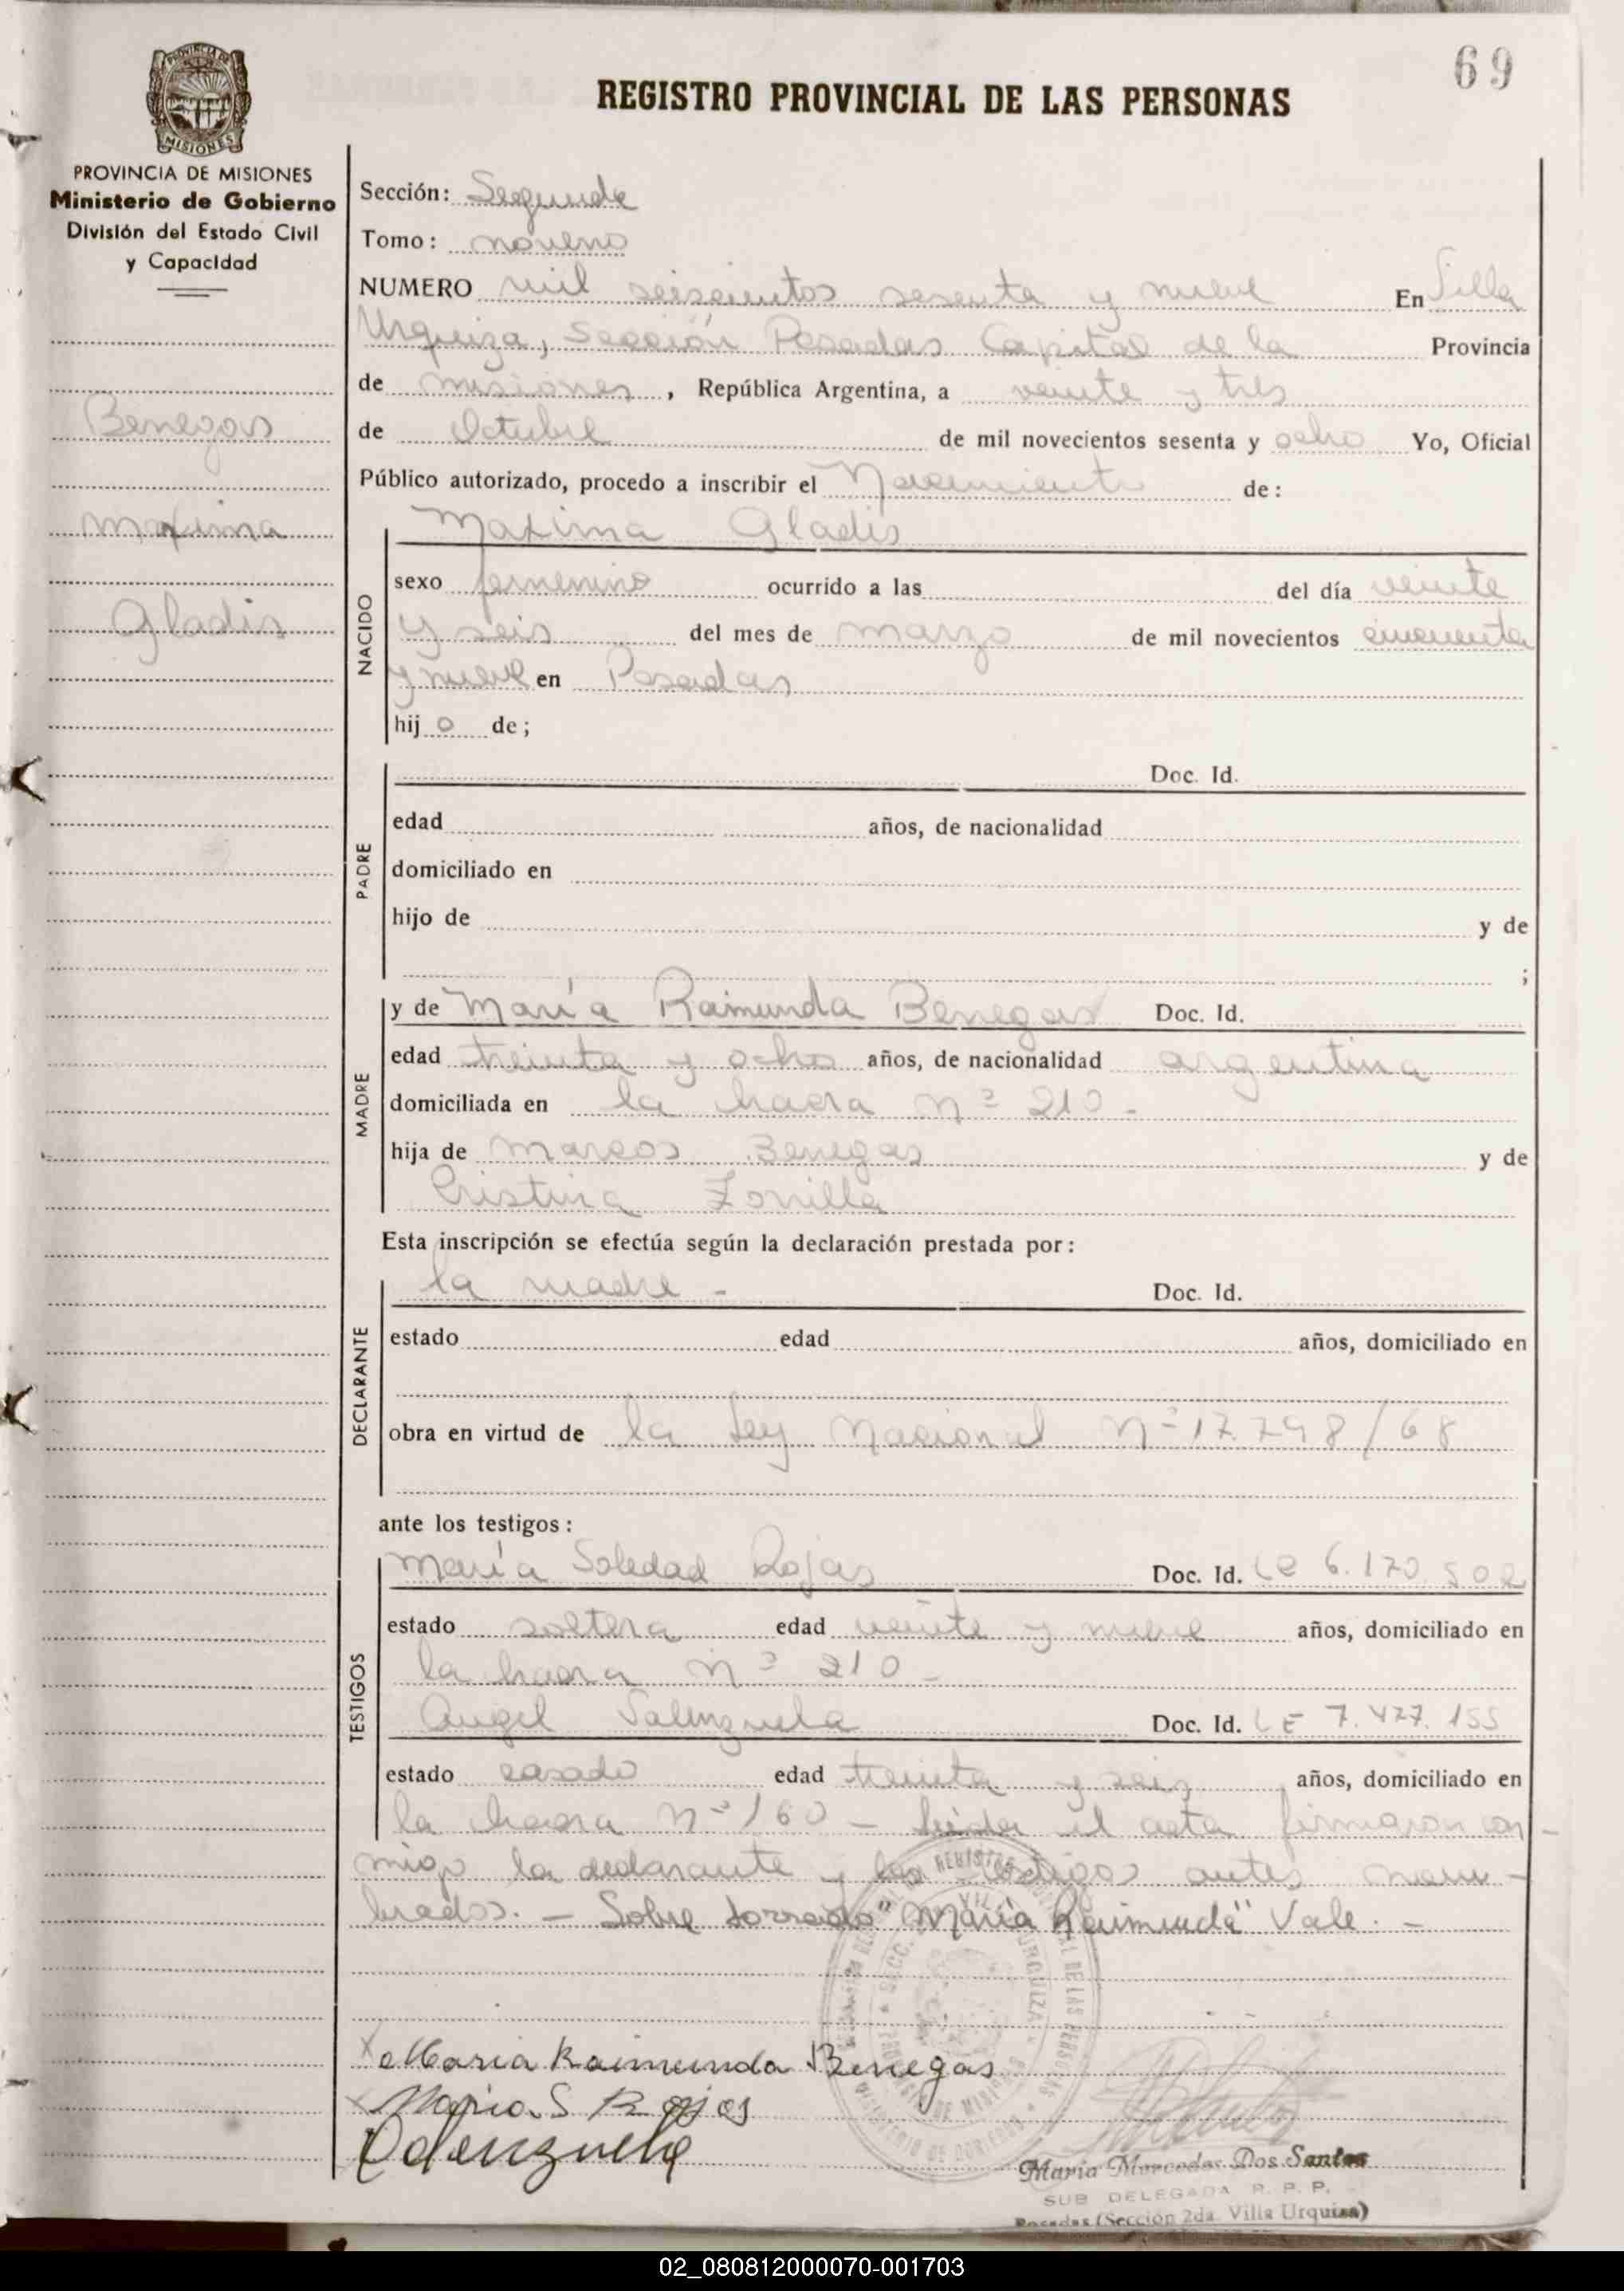 69
REGISTRO PROVINCIAL DE LAS PERSONAS
PROVINCIA DE
MISIONES
PROVINCIA DE MISIONES
Ministerio de Gobierno
División del Estado Civil
y Capacidad
Benegas
Maxima
Gladis
Sección: Segunda
Tomo: noveno
NUMERO mil seiscientos sesenta y nueve En Villa
Urquiza, Sección Posadas Capital de la Provincia
de misiones, República Argentina, a veinte y tres
de Octubre de mil novecientos sesenta y ocho Yo, Oficial
Público autorizado, procedo a inscribir el Nacimiento de:
NACIDO
Maxima Gladis
sexo femenino ocurrido a las del día veinte
y seis del mes de marzo de mil novecientos cincuenta
y nueve en Posadas
hij o de;
PADRE
Doc. Id.
edad años, de nacionalidad
domiciliado en
hijo de y de
;
MADRE
y de María Raimunda Benegas Doc. Id.
edad treinta y ocho años, de nacionalidad argentina
domiciliada en la hacra Nº 210 -
hija de Marcos Benegas y de
Cristina Zorrilla
Esta inscripción se efectúa según la declaración prestada por:
DECLARANTE
la madre - Doc. Id.
estado edad años, domiciliado en
obra en virtud de la Ley Nacional Nº 17.798/68
ante los testigos:
TESTIGOS
María Soledad Rojas Doc. Id. LC 6.170.502
estado soltera edad veinte y nueve años, domiciliado en
la hacra Nº 210 -
Angel Valenzuela Doc. Id. LE 7.477.155
estado casado edad treinta y seis años, domiciliado en
la chacra Nº 160 - Leida el acta firmaron con-
migo la declarante y los testigos antes nom-
brados. - Sobre borrado "María Raimunda" Vale. -
Maria Raimunda Benegas
Maria S Rojas
Valenzuela
María Mercedes Dos Santos
SUB DELEGADA R. P. P.
Posadas (Sección 2da. Villa Urquiza)
02_080812000070-001703